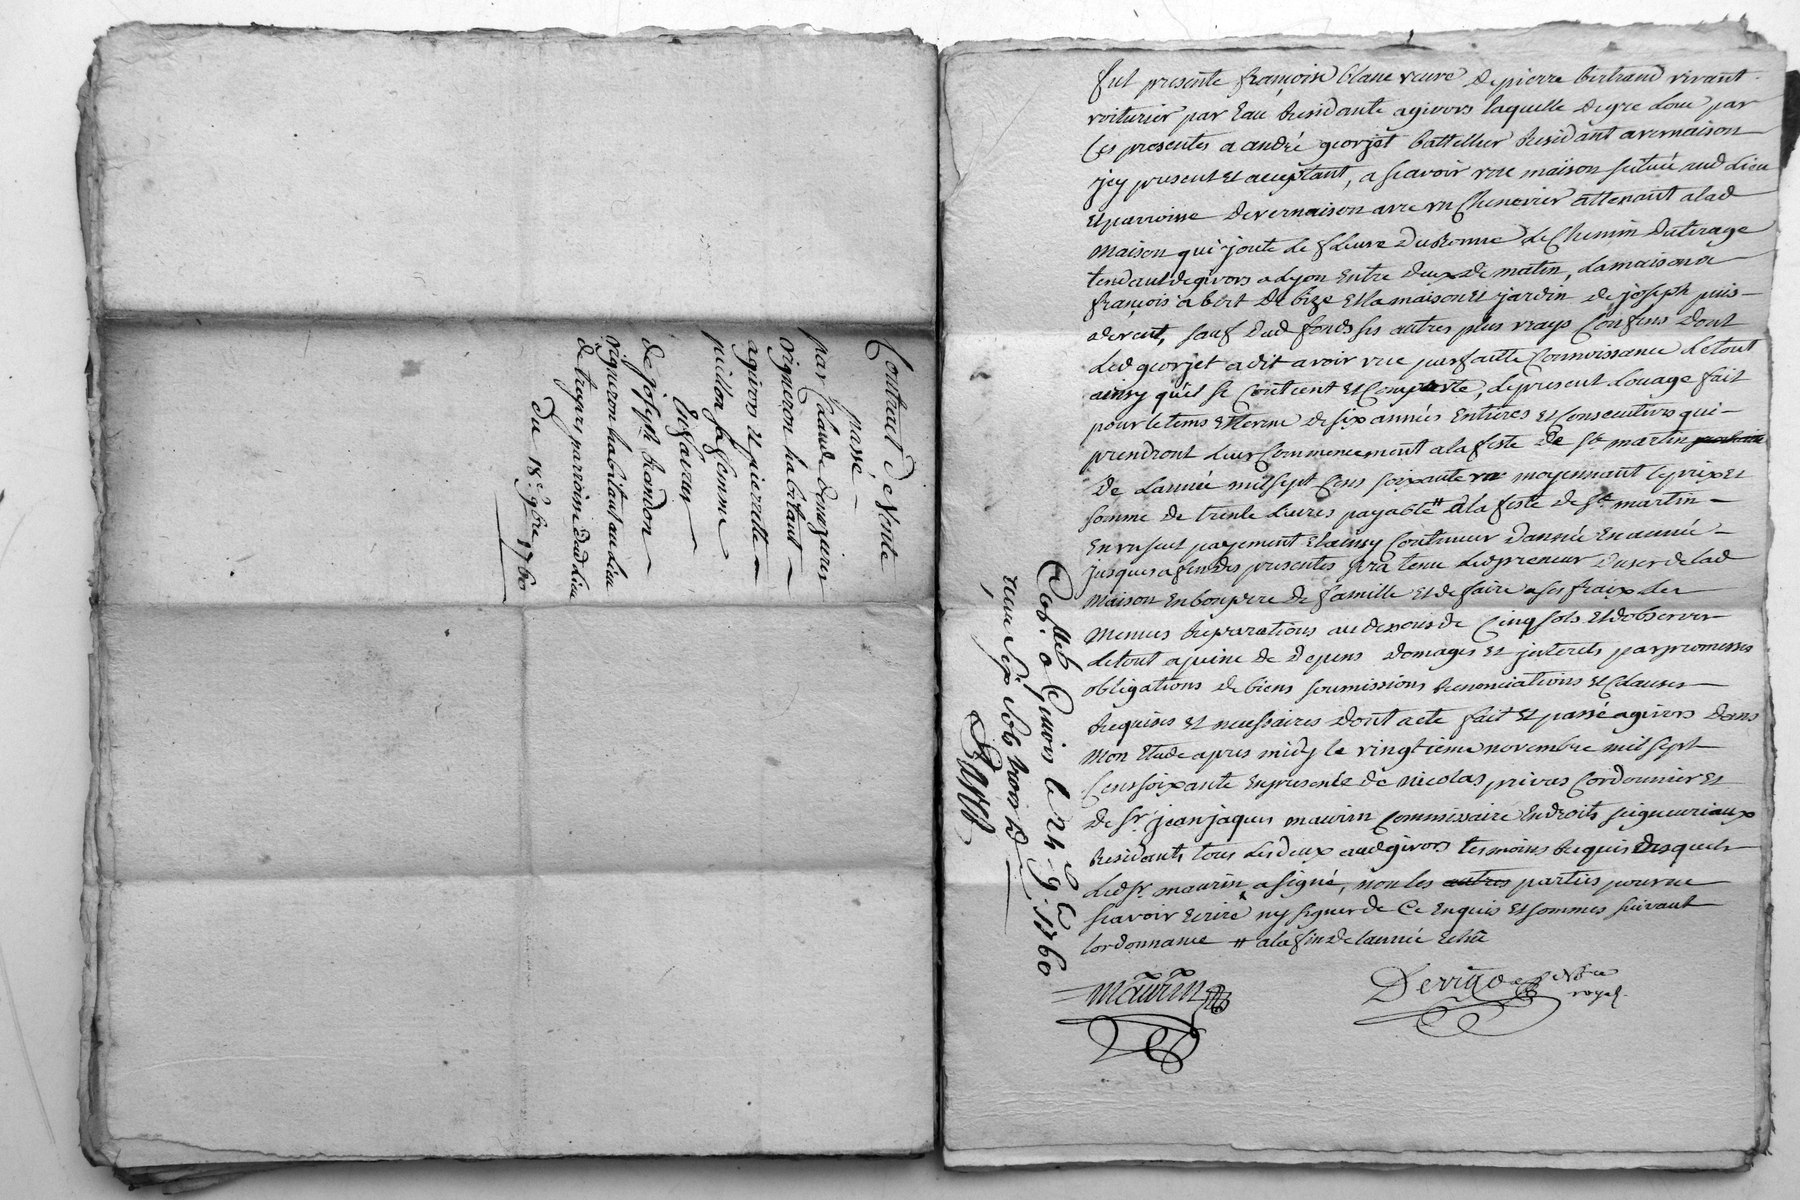 Contract de Vente
passé
par Claude
vigneron habitant
a givors et pierrette
puillon sa femme
En faveur
de joseph brandon
vigneron habitant au lieu
de trepres parroisse dud lieu
Du 18e 9bre 1760
fut presente françoise blanc veuve de pierre bertrand vivant
voiturier par Eau Residante a givors laquelle degré loue par
Ces presentes a andré georjet battellier Residant a vernaison
jcy present et acceptant, a scavoir une maison scituée aud lieu
et parroisse de vernaison avec un Chenevier attenant a lad
maison qui joute le fleuve du Ronne le Chemin du tirage
tendant de givors a Lyon entre deux de matin, la maison de
françois abert de bize et la maison et jardin de joseph puis
de vent, sauf dud fonds ses autres plus vrays Confins dont
led georjet a dit avoir une parfaitte Connoissance le tout
ainsy qu'il se Contient et Comporte, le present louage fait
pour le tems et terme de six années Entieres et Consecutives qui
prendront leur Commencement a la feste de St martin prochaine
de L'année mil sept Cens soixante un moyennant le prix et
somme de trente Livres payable # a la feste de St martin
en un seul payement et ainsy Continuer d'année en année
jusques a fin des presentes sera tenu led preneur d'user de lad
maison en bon pere de famille et de faire a ses fraix les
menues Reparations au dessous de Cinq sols et d'observer
le tout a peine de depens domages et jnterets par promesses
obligations de biens soumissions Renonciations et Clauses
Requises et necessaires dont acte fait et passé a givors dans
mon Etude apres midy le vingtieme novembre mil sept
Cens soixante en presence de nicolas privas Cordonnier et
de Sr jean jaques maurin Commissaire en droits seigneuriaux
Residants tous les deux aud givors temoins Requis desquels
led Sr maurin a signé, non les autres parties pour ne
scavoir ecrire ny signer de Ce enquis et sommes suivant
lordonnance # a la fin de l'année echû
maurin
Devigo Nre
royal
Con.lle a Givors le 24e 9bre 1760
reçu sept sols trois d